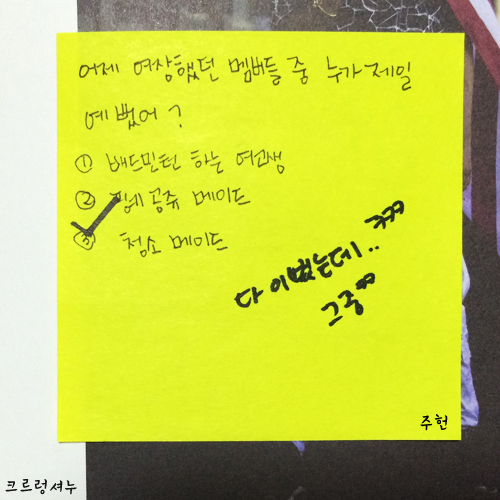 어제 여장했던 멤버들 중 누가 제일
예뻤어?
① 배드민턴 하는 여고생
② 핑크 공쥬 메이드
③ 청소 메이드
다 이뻤는데.. ㅋㅋㅋ
그중
주헌
크르렁셔누